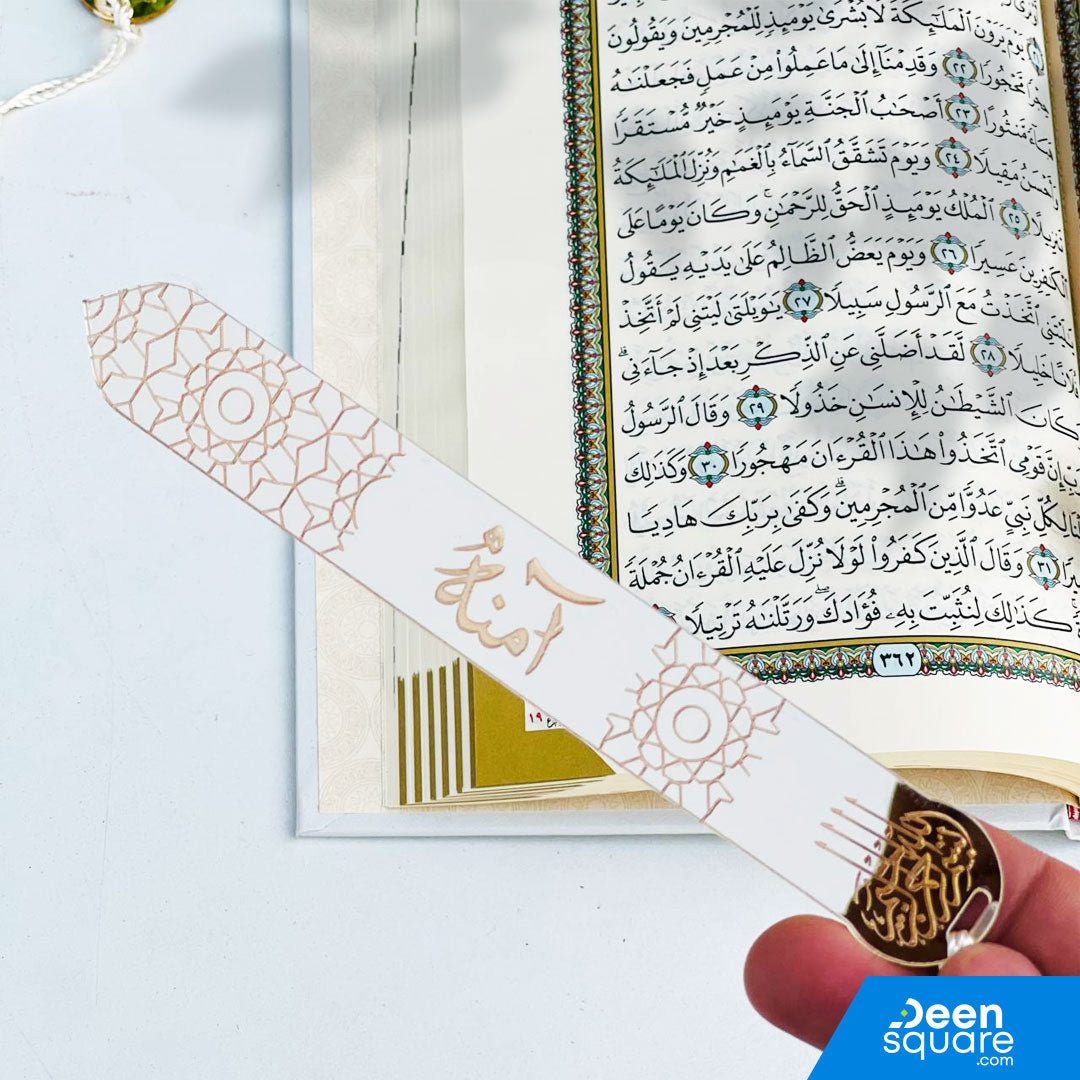 يَوْمَ يَرَوْنَ ٱلْمَلَـٰٓئِكَةَ لَا بُشْرَىٰ يَوْمَئِذٍ لِّلْمُجْرِمِينَ وَيَقُولُونَ
مَّحْجُورًا ٢٢ وَقَدِمْنَآ إِلَىٰ مَا عَمِلُوا۟ مِنْ عَمَلٍ فَجَعَلْنَـٰهُ
مَّنثُورًا ٢٣ أَصْحَـٰبُ ٱلْجَنَّةِ يَوْمَئِذٍ خَيْرٌ مُّسْتَقَرًّا
وَأَحْسَنُ مَقِيلًا ٢٤ وَيَوْمَ تَشَقَّقُ ٱلسَّمَآءُ بِٱلْغَمَـٰمِ وَنُزِّلَ ٱلْمَلَـٰٓئِكَةُ
تَنزِيلًا ٢٥ ٱلْمُلْكُ يَوْمَئِذٍ ٱلْحَقُّ لِلرَّحْمَـٰنِ ۚ وَكَانَ يَوْمًا عَلَى
ٱلْكَـٰفِرِينَ عَسِيرًا ٢٦ وَيَوْمَ يَعَضُّ ٱلظَّالِمُ عَلَىٰ يَدَيْهِ يَقُولُ
يَـٰلَيْتَنِى ٱتَّخَذْتُ مَعَ ٱلرَّسُولِ سَبِيلًا ٢٧ يَـٰوَيْلَتَىٰ لَيْتَنِى لَمْ أَتَّخِذْ
فُلَانًا خَلِيلًا ٢٨ لَّقَدْ أَضَلَّنِى عَنِ ٱلذِّكْرِ بَعْدَ إِذْ جَآءَنِى ۗ
وَكَانَ ٱلشَّيْطَـٰنُ لِلْإِنسَـٰنِ خَذُولًا ٢٩ وَقَالَ ٱلرَّسُولُ
يَـٰرَبِّ إِنَّ قَوْمِى ٱتَّخَذُوا۟ هَـٰذَا ٱلْقُرْءَانَ مَهْجُورًا ٣٠ وَكَذَٰلِكَ
جَعَلْنَا لِكُلِّ نَبِىٍّ عَدُوًّا مِّنَ ٱلْمُجْرِمِينَ ۗ وَكَفَىٰ بِرَبِّكَ هَادِيًا
وَنَصِيرًا ٣١ وَقَالَ ٱلَّذِينَ كَفَرُوا۟ لَوْلَا نُزِّلَ عَلَيْهِ ٱلْقُرْءَانُ جُمْلَةً
كَذَٰلِكَ لِنُثَبِّتَ بِهِۦ فُؤَادَكَ ۖ وَرَتَّلْنَـٰهُ تَرْتِيلًا
٣٦٢
١٩
آمنةُ
Deen
square
.com